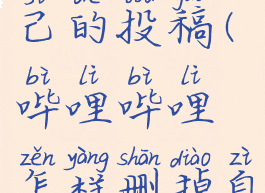 己的投稿(
bì lī bì lī
哔哩哔哩
zěn yàng shān diào zì
怎样删掉自